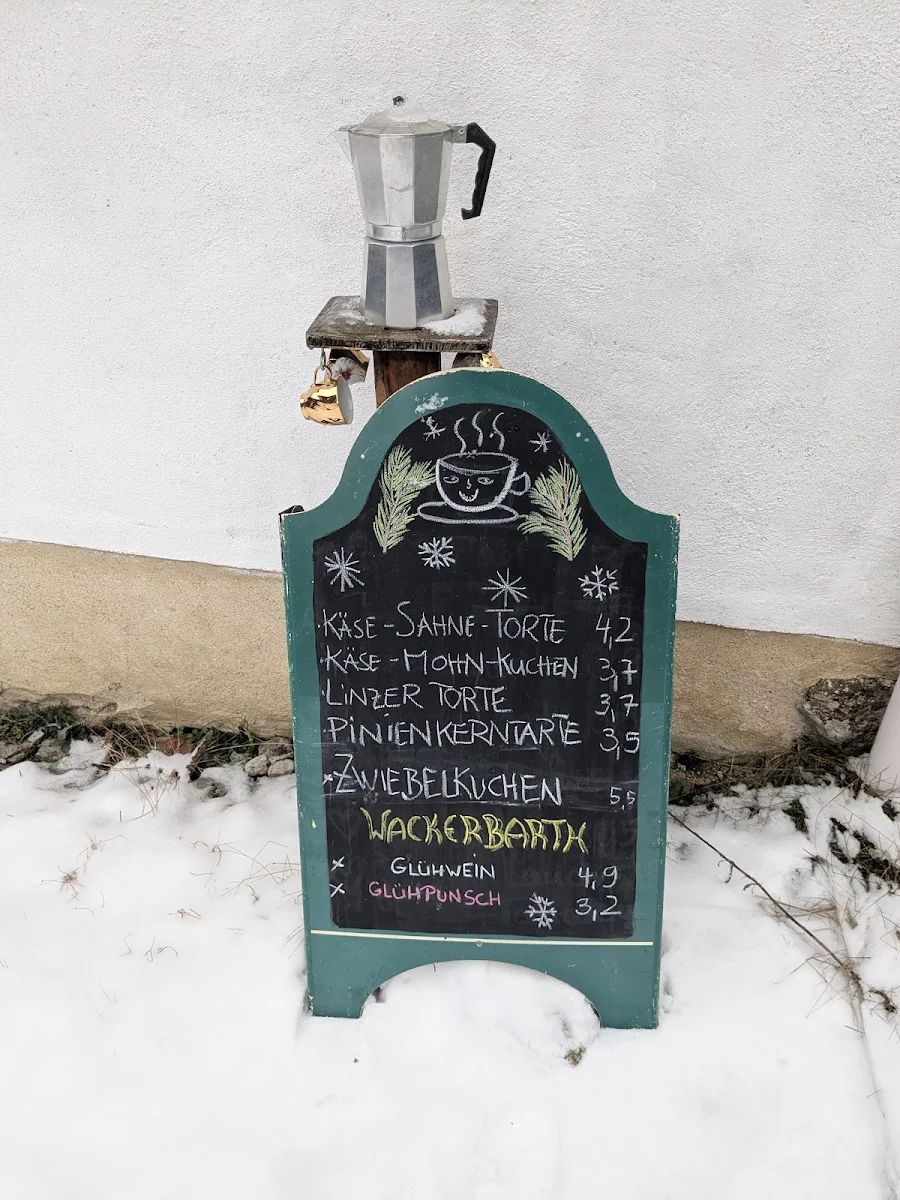 ·KÄSE-SAHNE-TORTE 4,2
·KÄSE-MOHN-KUCHEN 3,7
·LINZER TORTE 3,7
·PINIENKERNTARTE 3,5
×ZWIEBELKUCHEN 5,5
WACKERBARTH
× GLÜHWEIN 4,9
× GLÜHPUNSCH 3,2